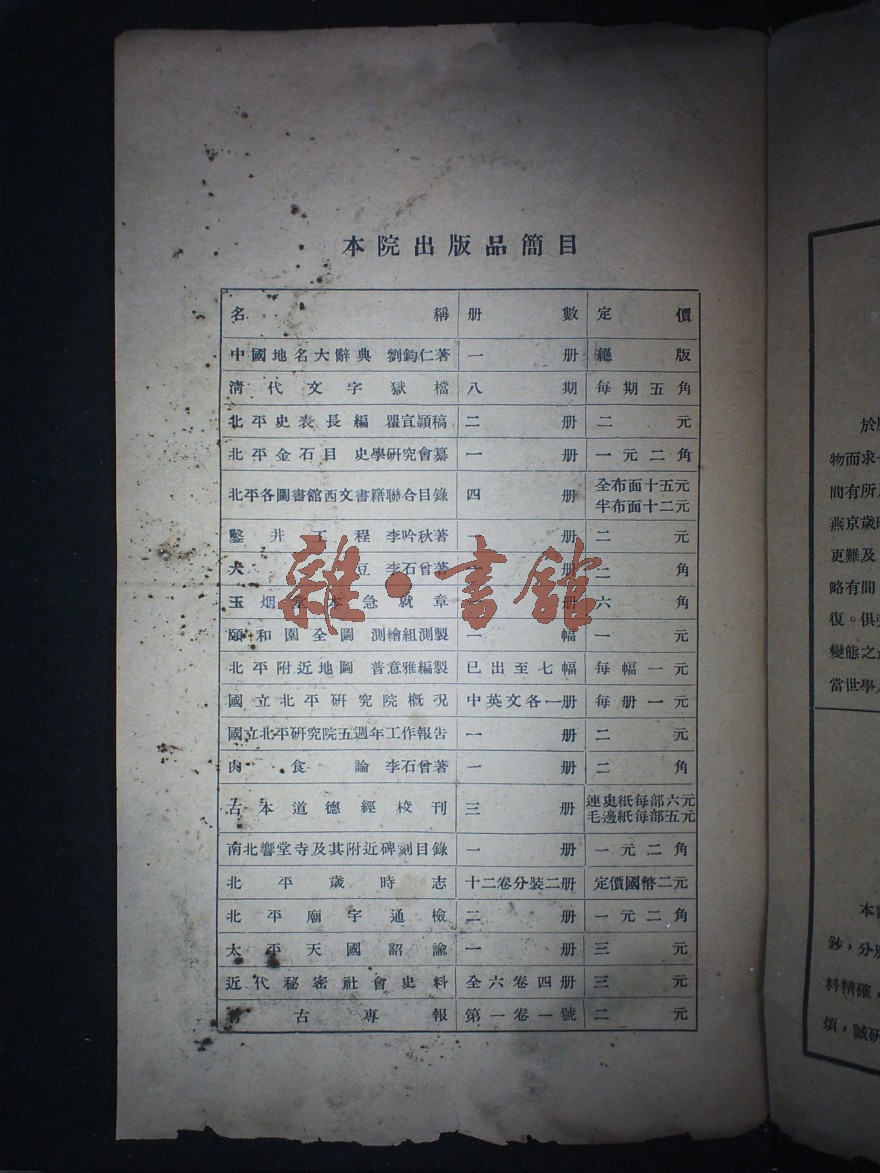 本院出版品簡目
名稱 册數 定價
中國地名大辭典 劉鈞仁著 一册 絕版
清代文字獄檔 八期 每期五角
北平史表長編 瞿宣穎稿 二册 二元
北平金石目 史學研究會纂 一册 一元二角
北平各圖書館西文書籍聯合目錄 四册 全布面十五元
半布面十二元
鑿井工程 李吟秋著 册 二元
大豆 李石曾著 一册 二角
玉烟堂本急就章 册 六角
頤和園全圖 測繪組測製 一幅 一元
北平附近地圖 普意雅編製 已出至七幅 每幅一元
國立北平研究院概况 中英文各一册 每册一元
國立北平研究院五週年工作報告 一册 二元
肉食論 李石曾著 一册 二角
古本道德經校刊 三册 連史紙每部六元
毛邊紙每部五元
南北響堂寺及其附近碑刻目錄 一册 一元二角
北平歲時志 十二卷分裝二册 定價國幣二元
北平廟宇通檢 二册 一元二角
太平天國詔諭 一册 三元
近代秘密社會史料 全六卷四册 三元
考古專報 第一卷一號 二元
雜·書館
物而求
間有所
燕京歲時
更難及
略有間
復。俱
變態之
當世學
本
鈔，分別
料精確，
煩，誠研